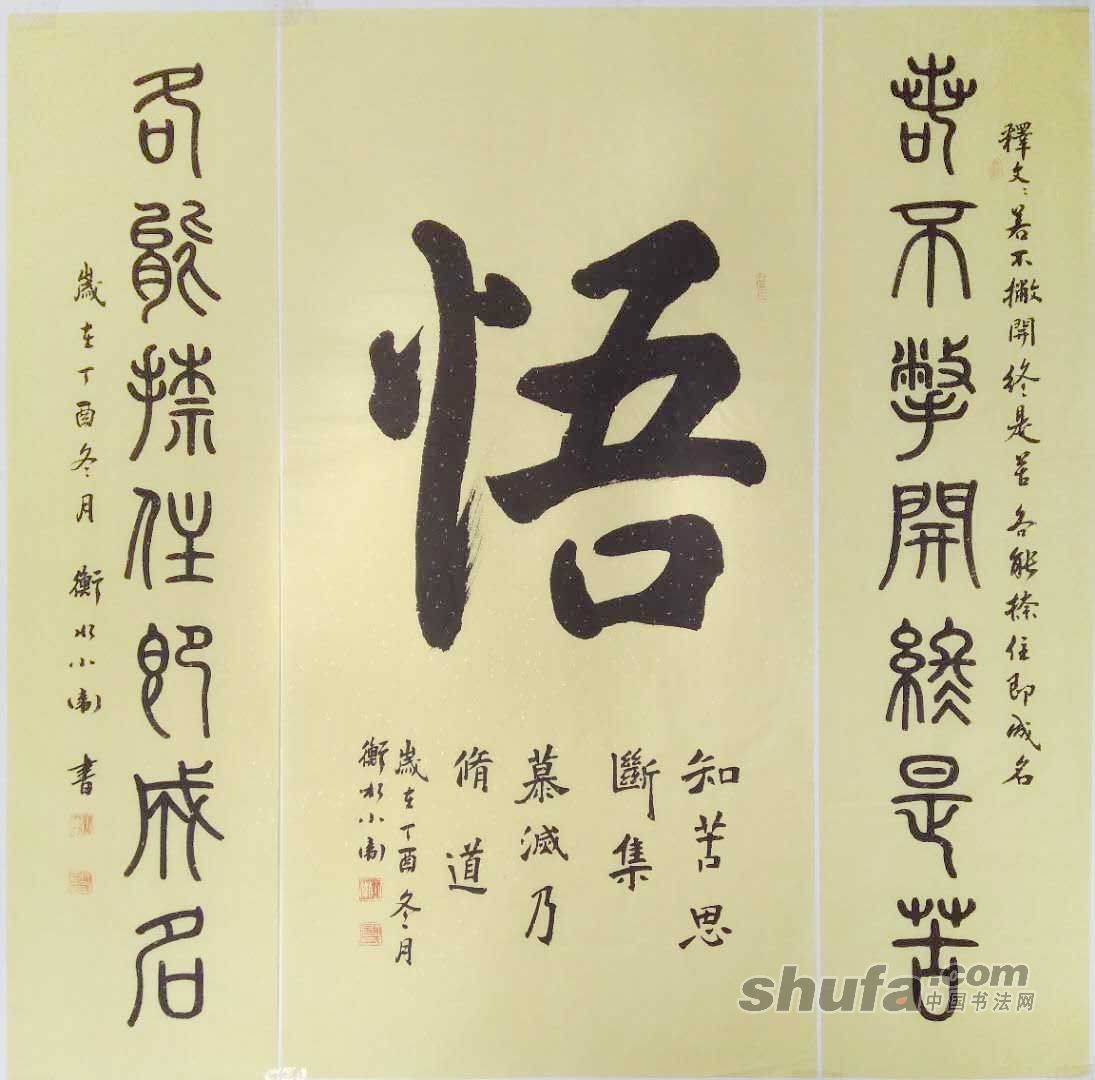 釋文：若不撇開終是苦各能捺住即成名
若不撆開終是苦
悟
知苦思
斷集
慕滅乃
脩道
歲在丁酉冬月
衡水小
各能捺住即成名
歲在丁酉冬月 衡水小 書
shufa.com
中国书法网